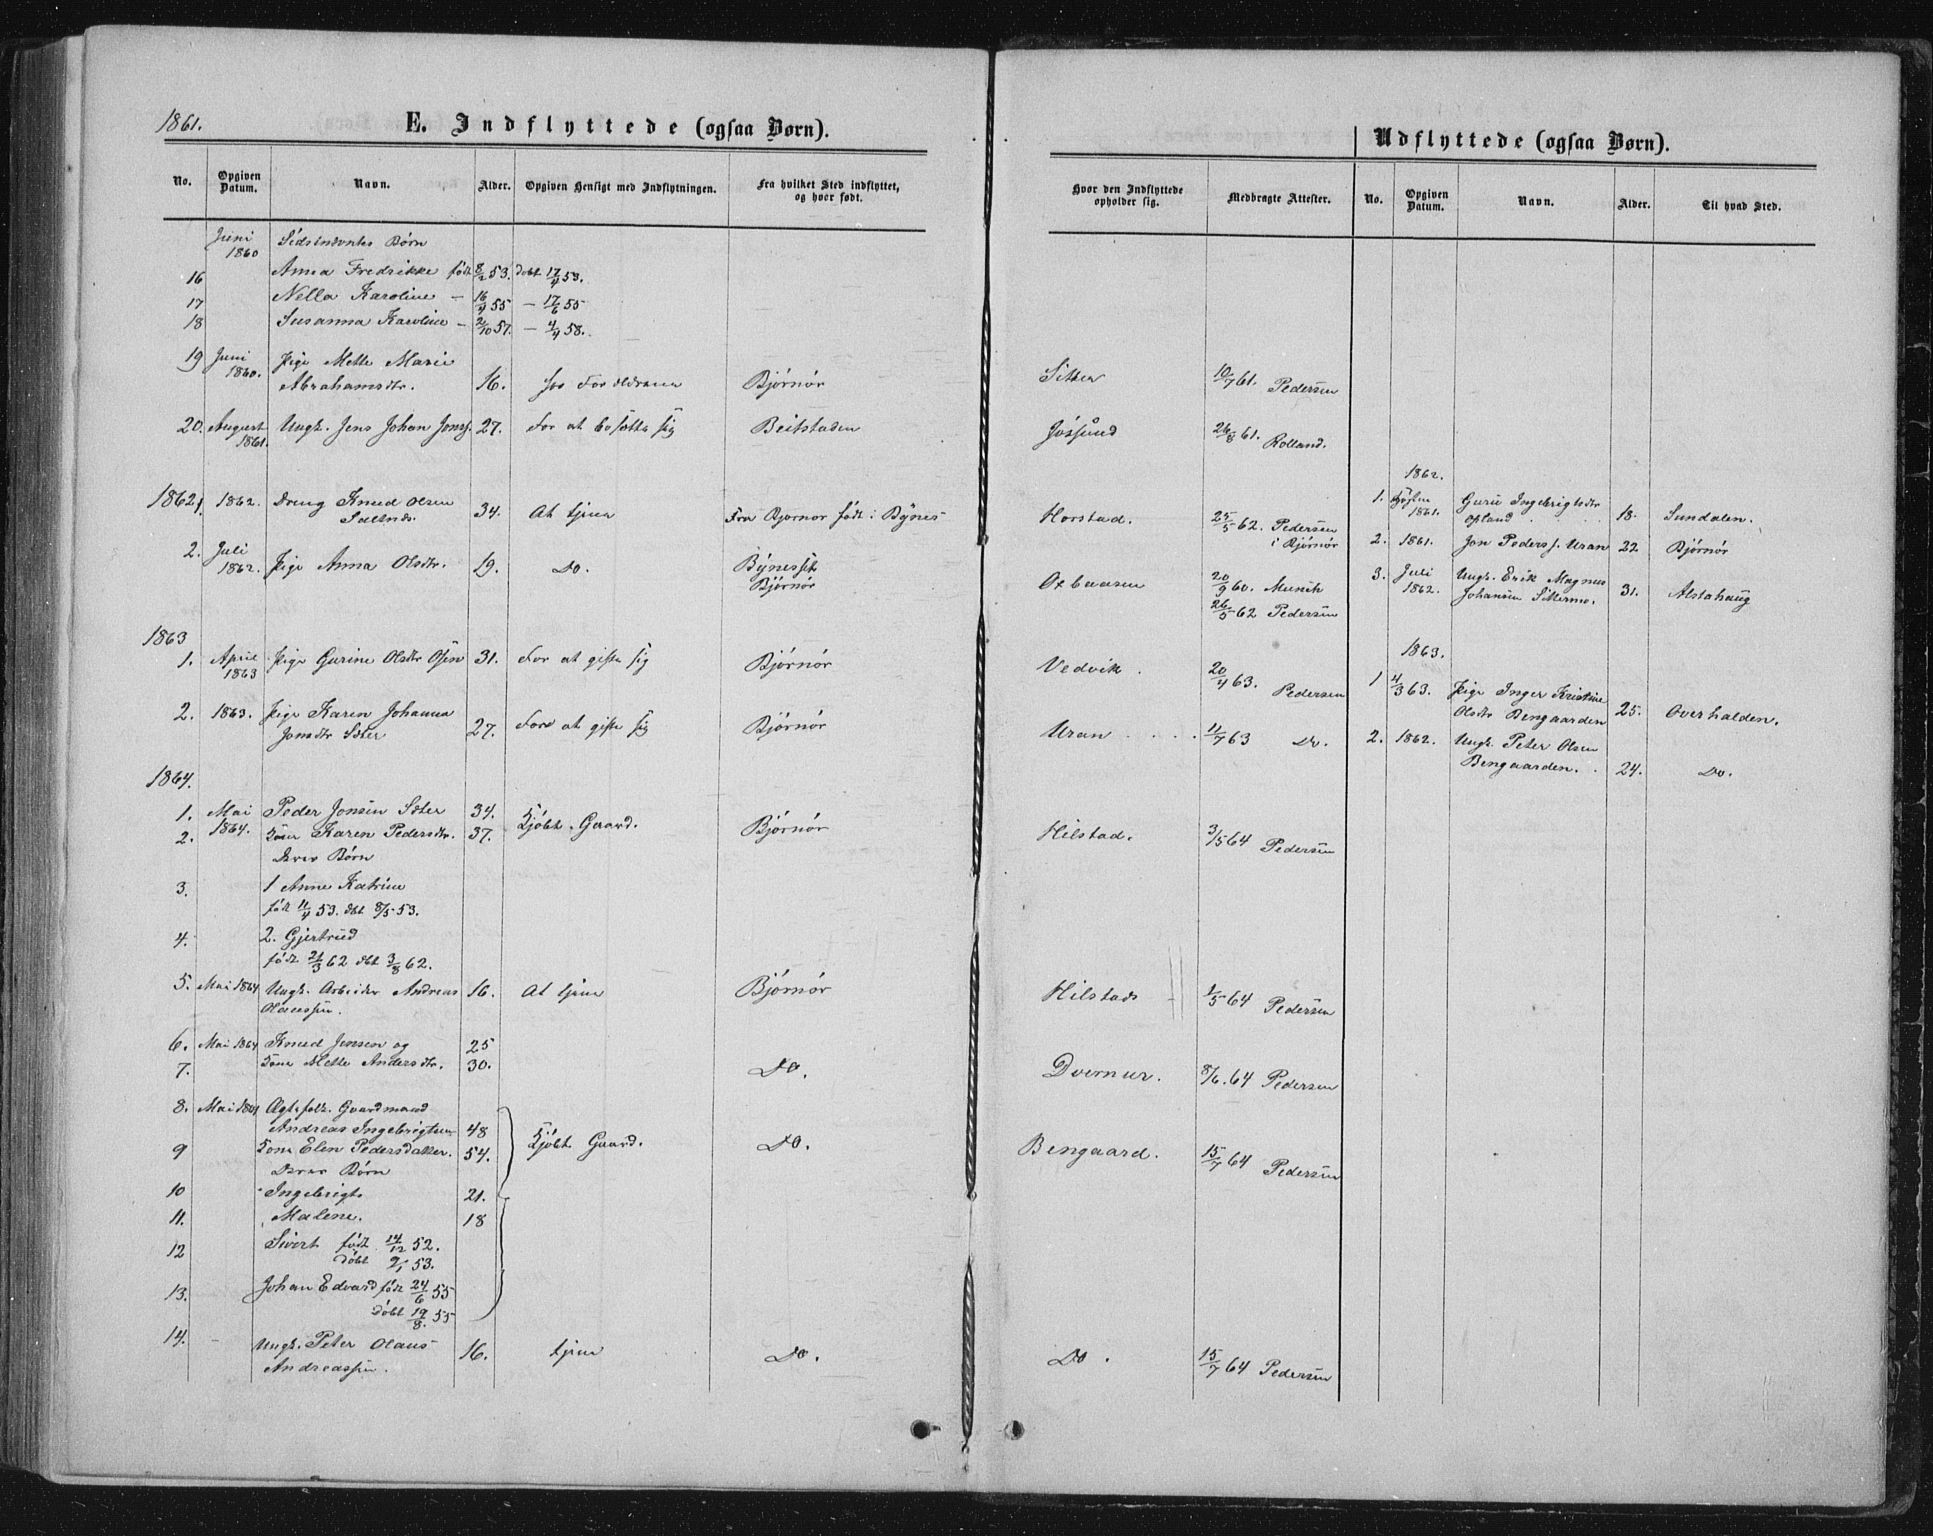 1861.
E. Indflyttede (ogsaa Børn).
No. Opgiven Datum. Navn. Alder. Opgiven Hensigt med Indflytningen. Fra hvilket Sted indflyttet, og hvor født.
Juni 1860 Børn
16 Anna Fredrikke født 8/2 53. døbt 17/4 53.
17 Nella Karoline – 16/4 55 – 17/6 55
18 Susanna Karoline – 2/10 57. – 4/4 58.
19 Juni 1860. Pige Mette Marie
Abrahamsdtr. 16. hos Forældrene Bjørnør
20. August 1861. Ungk. Jens Johan Jonss. 27. For at bosætte sig Beitstaden
1862
1. 1862. Dreng Knud Olsen
34. At tjene Fra Bjørnør født i Bynes
2. Juli 1862. Pige Anna Olsdtr. 19. Do. Bynesset
Bjørnør
1863
1. April 1863 Pige Gurine Olsdtr Osen 31. For at gifte sig Bjørnør
2. 1863. Pige Karen Johanna
Jonsdtr Sæter 27. For at gifte sig Bjørnør
1864.
1. Mai 1864. Peder Jonsen Sæter 34. Kjøbt Gaard. Bjørnør
2. Kone Karen Pedersdtr. 37.
Deres Børn
3. 1 Anne Katrine
født 11/4 53. dbt 8/5 53.
4. 2. Gjertrud
født 21/3 62 dbt 3/8 62.
5. Mai 1864 Ungk. Arbeider Andreas 16. At tjene Bjørnør
Olaussen.
6. Mai 1864 Knud Jensen og 25
7. Kone Mette Andersdtr. 30. Do.
8. Mai 1864 Ægtefolk. Gaardmand
Andreas Ingebrigtsen 48
9 Kone Elen Pedersdatter. 54. Kjøbt Gaard. Do.
Deres Børn
10 Ingebrigt 21.
11. Malene. 18
12 Sivert født 14/12 52.
døbt 9/1 53.
13. Johan Edvard født 24/6 55
døbt 19/8. 55
14. Ungk. Peter Olaus
Andreassen. 16. tjene Do.
Udflyttede (ogsaa Børn).
Hvor den Indflyttede opholder sig. Medbragte Attester. No. Opgiven Datum. Navn. Alder. Til hvad Sted.
Sitter 10/7 61. Pedersen
Jøssund 26/8 61. Rolland.
1862.
Horstad. 25/5 62. Pedersen
i Bjørnør
1. Høsten 1861. Guru Ingebrigtsdtr
Opland 18. Sundalen.
2. 1861. Jon Peders. Uran 22 Bjørnør
Oxbaasen 20/9 60. Munch
26/5 62 Pedersen
3. Juli 1862. Ungk. Erik Magnus
Johansen Sittermo. 31. Alstahaug
1863.
Vedvik. 20/4 63. Pedersen
1 4/3 63. Pige Inger Kristine
Olsdtr Bengaarden 25. Overhalden.
Uran 11/7 63 Do.
2. 1862. Ungk. Peter Olsen
Bengaarden. 24. Do.
Hilstad. 3/5 64 Pedersen
Hilstad 1/5 64 Pedersen
Dvernur. 8/6. 64 Pedersen
Bengaard. 15/7 64 Pedersen
Do. 15/7 64 Pedersen